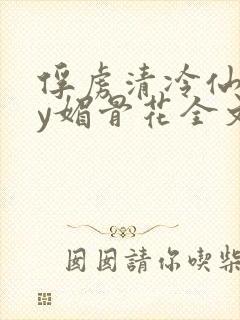 俘虏清冷仙
y媚骨花全文
囡囡請你喫柴